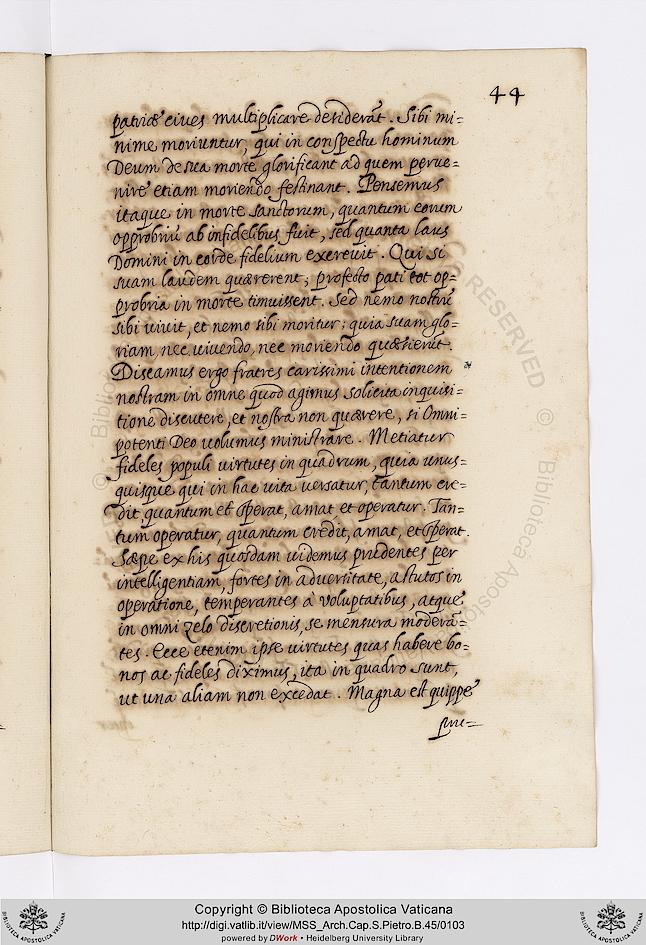 44
patriæ cives multiplicare desiderāt. Sibi mi=
nime moriuntur, qui in conspectu hominum
Deum de sua morte glorificant ad quem perve=
nire etiam moriendo festinant. Pensemus
itaque in morte sanctorum, quantum eorum
opprobriū ab infidelibus fuit, sed quanta laus
Domini in corde fidelium exerevit. Qui si
suam laudem quærerent, profecto pati tot op=
probria in morte timuissent. Sed nemo nostrū
sibi vivit, et nemo sibi moritur: quia suam glo=
riam, nec vivendo, nec moriendo quæsierit.
Discamus ergo fratres carissimi intentionem
nostram in omne quod agimus solicita inquisi=
tione discutere, et nostra non quærere, si Omni=
potenti Deo volumus ministrare. Metiatur
fideles populi virtutes in quadrum, quia unus=
quisque qui in hac vita versatur, tantum cre=
dit quantum et sperat, amat et operatur. Tan=
tum operatur, quantum credit, amat, et sperat.
Sæpe ex his quosdam videmus prudentes per
intelligentiam, fortes in adversitate, astutos in
operatione, temperantes à voluptatibus, atque
in omni zelo discretionis, se mensura moderā=
tes. Ecce etenim ipse virtutes quas habere bo=
nos ac fideles diximus, ita in quadro sunt,
ut una aliam non excedat. Magna est quippe
Copyright © Biblioteca Apostolica Vaticana
http://digi.vatlib.it/view/MSS_Arch.Cap.S.Pietro.B.45/0103
powered by DWork • Heidelberg University Library